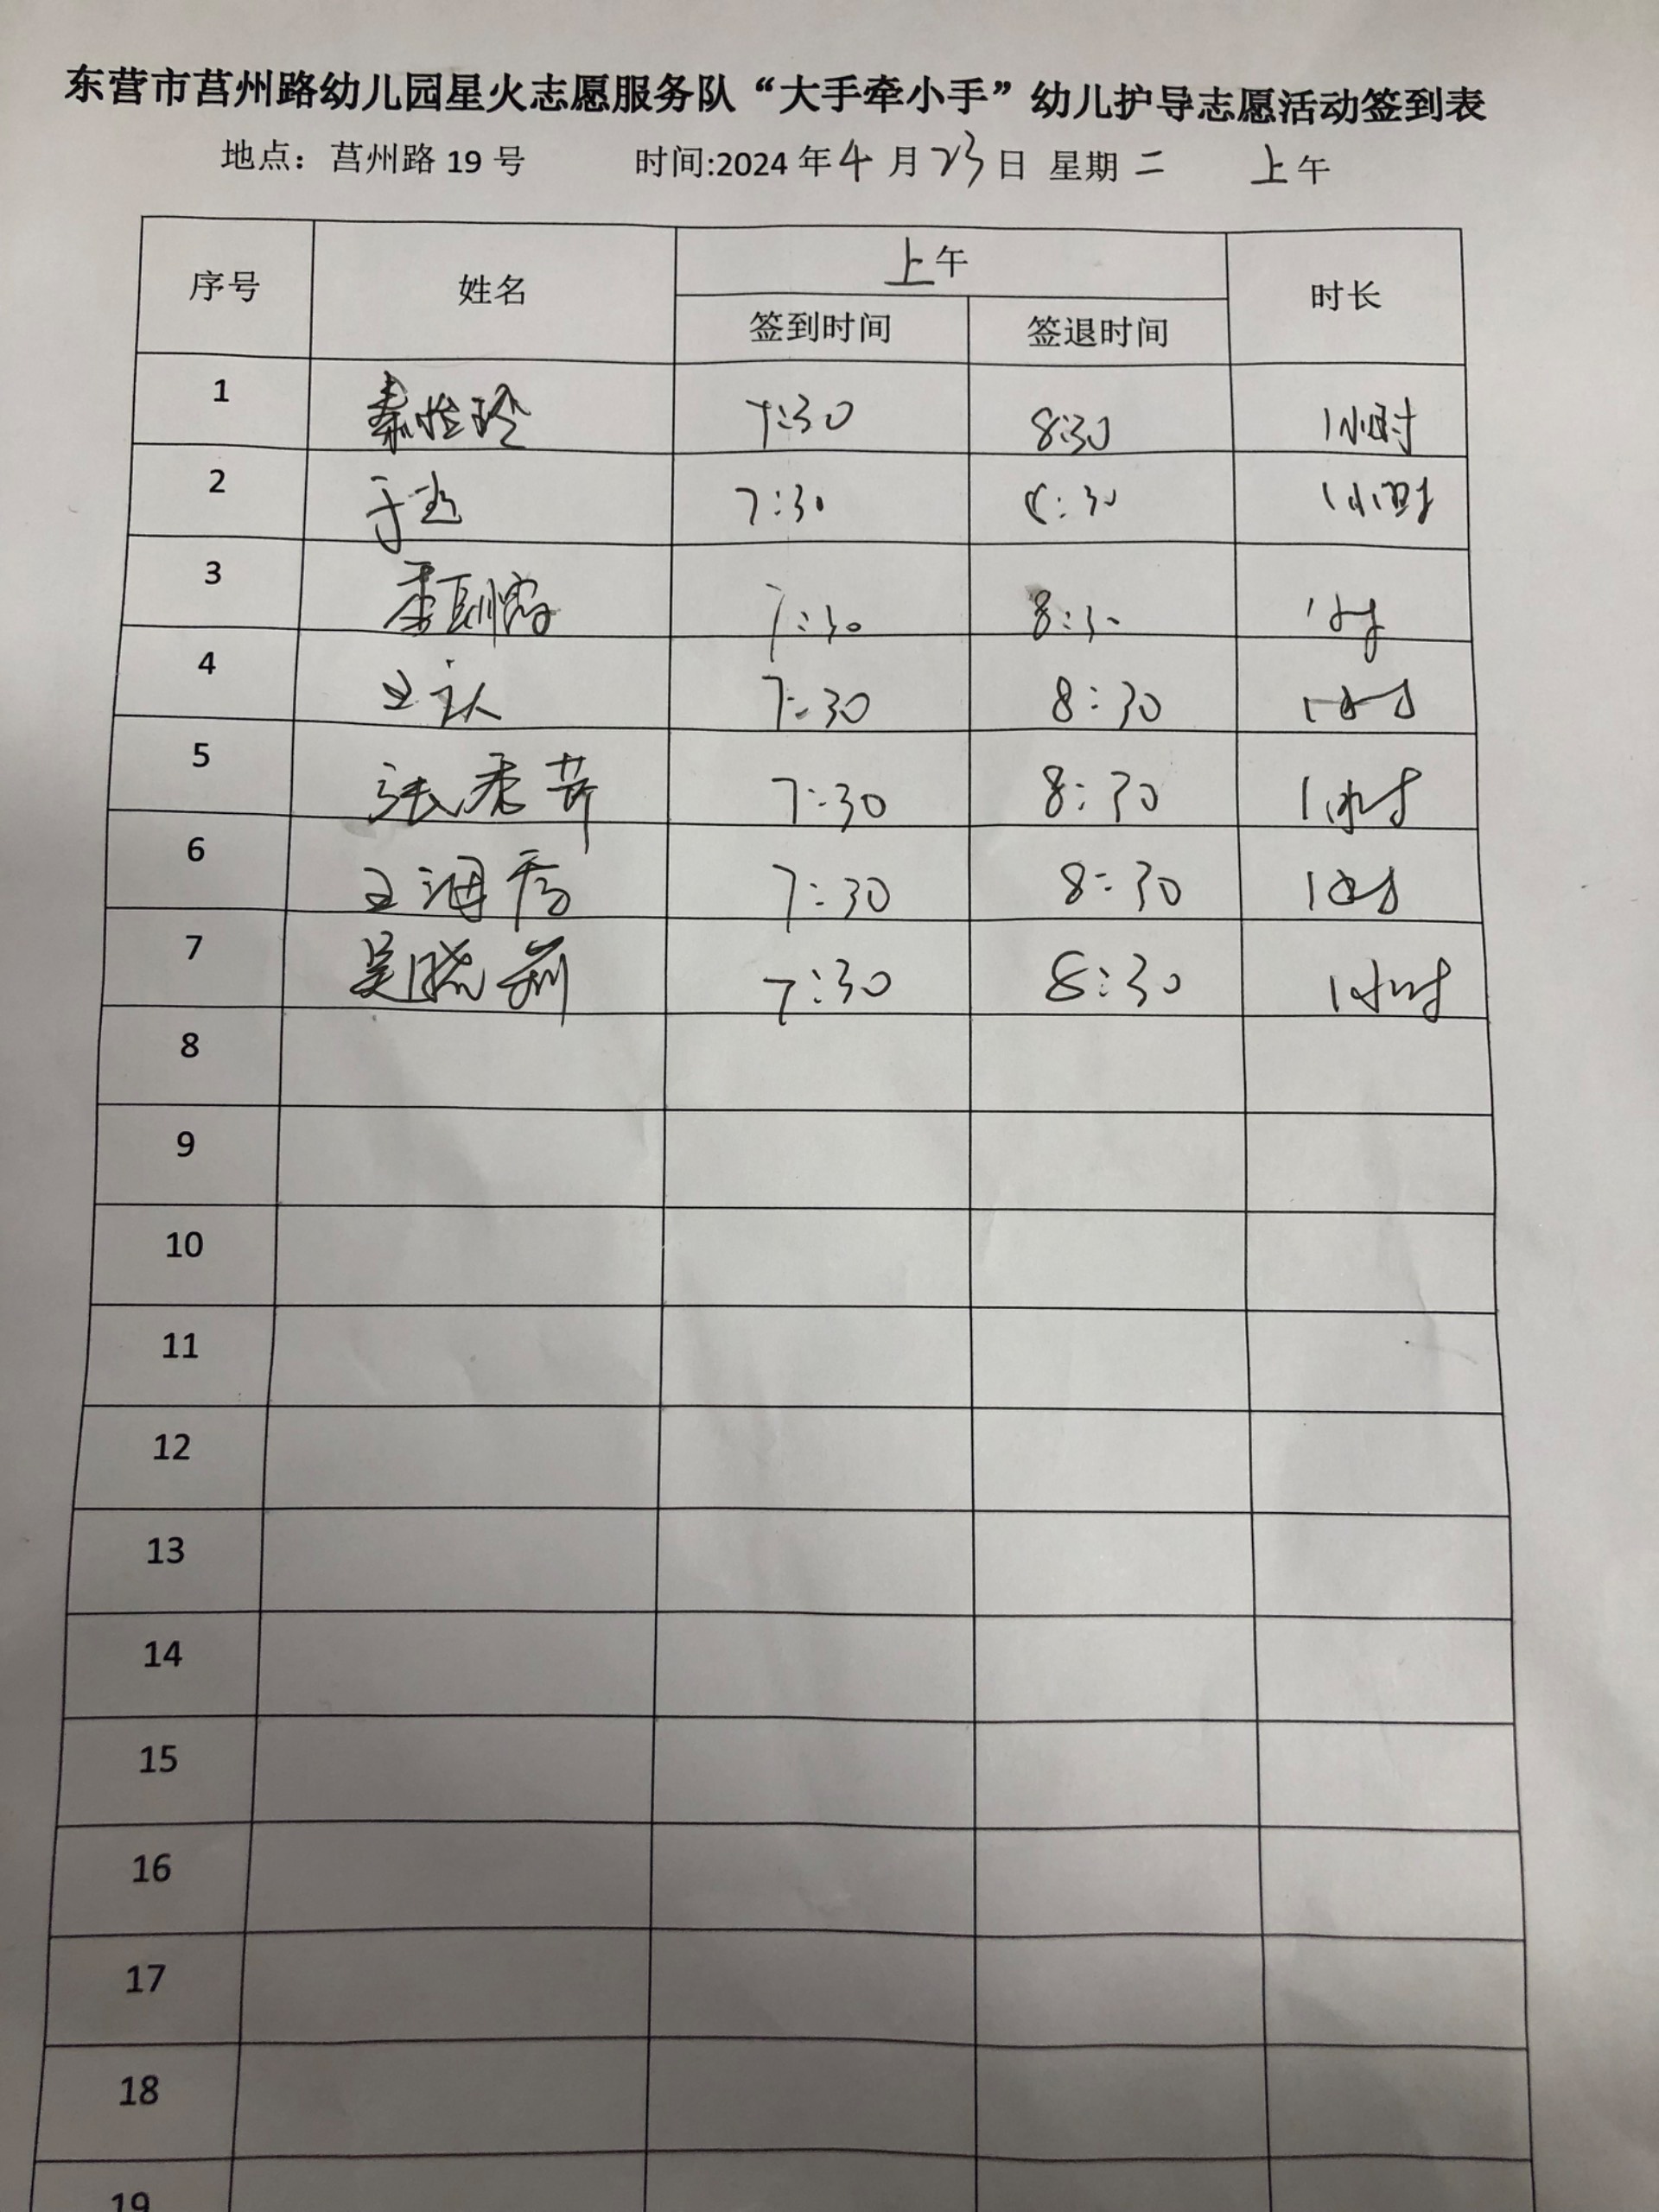 东营市莒州路幼儿园星火志愿服务队“大手牵小手”幼儿护导志愿活动签到表
地点：莒州路 19 号 时间:2024 年 4 月 23 日 星期 二 上午
序号 姓名 上午 时长
签到时间 签退时间
1 7:30 8:30 1小时
2 7:30 8:30 1小时
3 7:30 8:30 1时
4 7:30 8:30 1小时
5 7:30 8:30 1小时
6 王海秀 7:30 8:30 1小时
7 吴晓莉 7:30 8:30 1小时
8
9
10
11
12
13
14
15
16
17
18
19